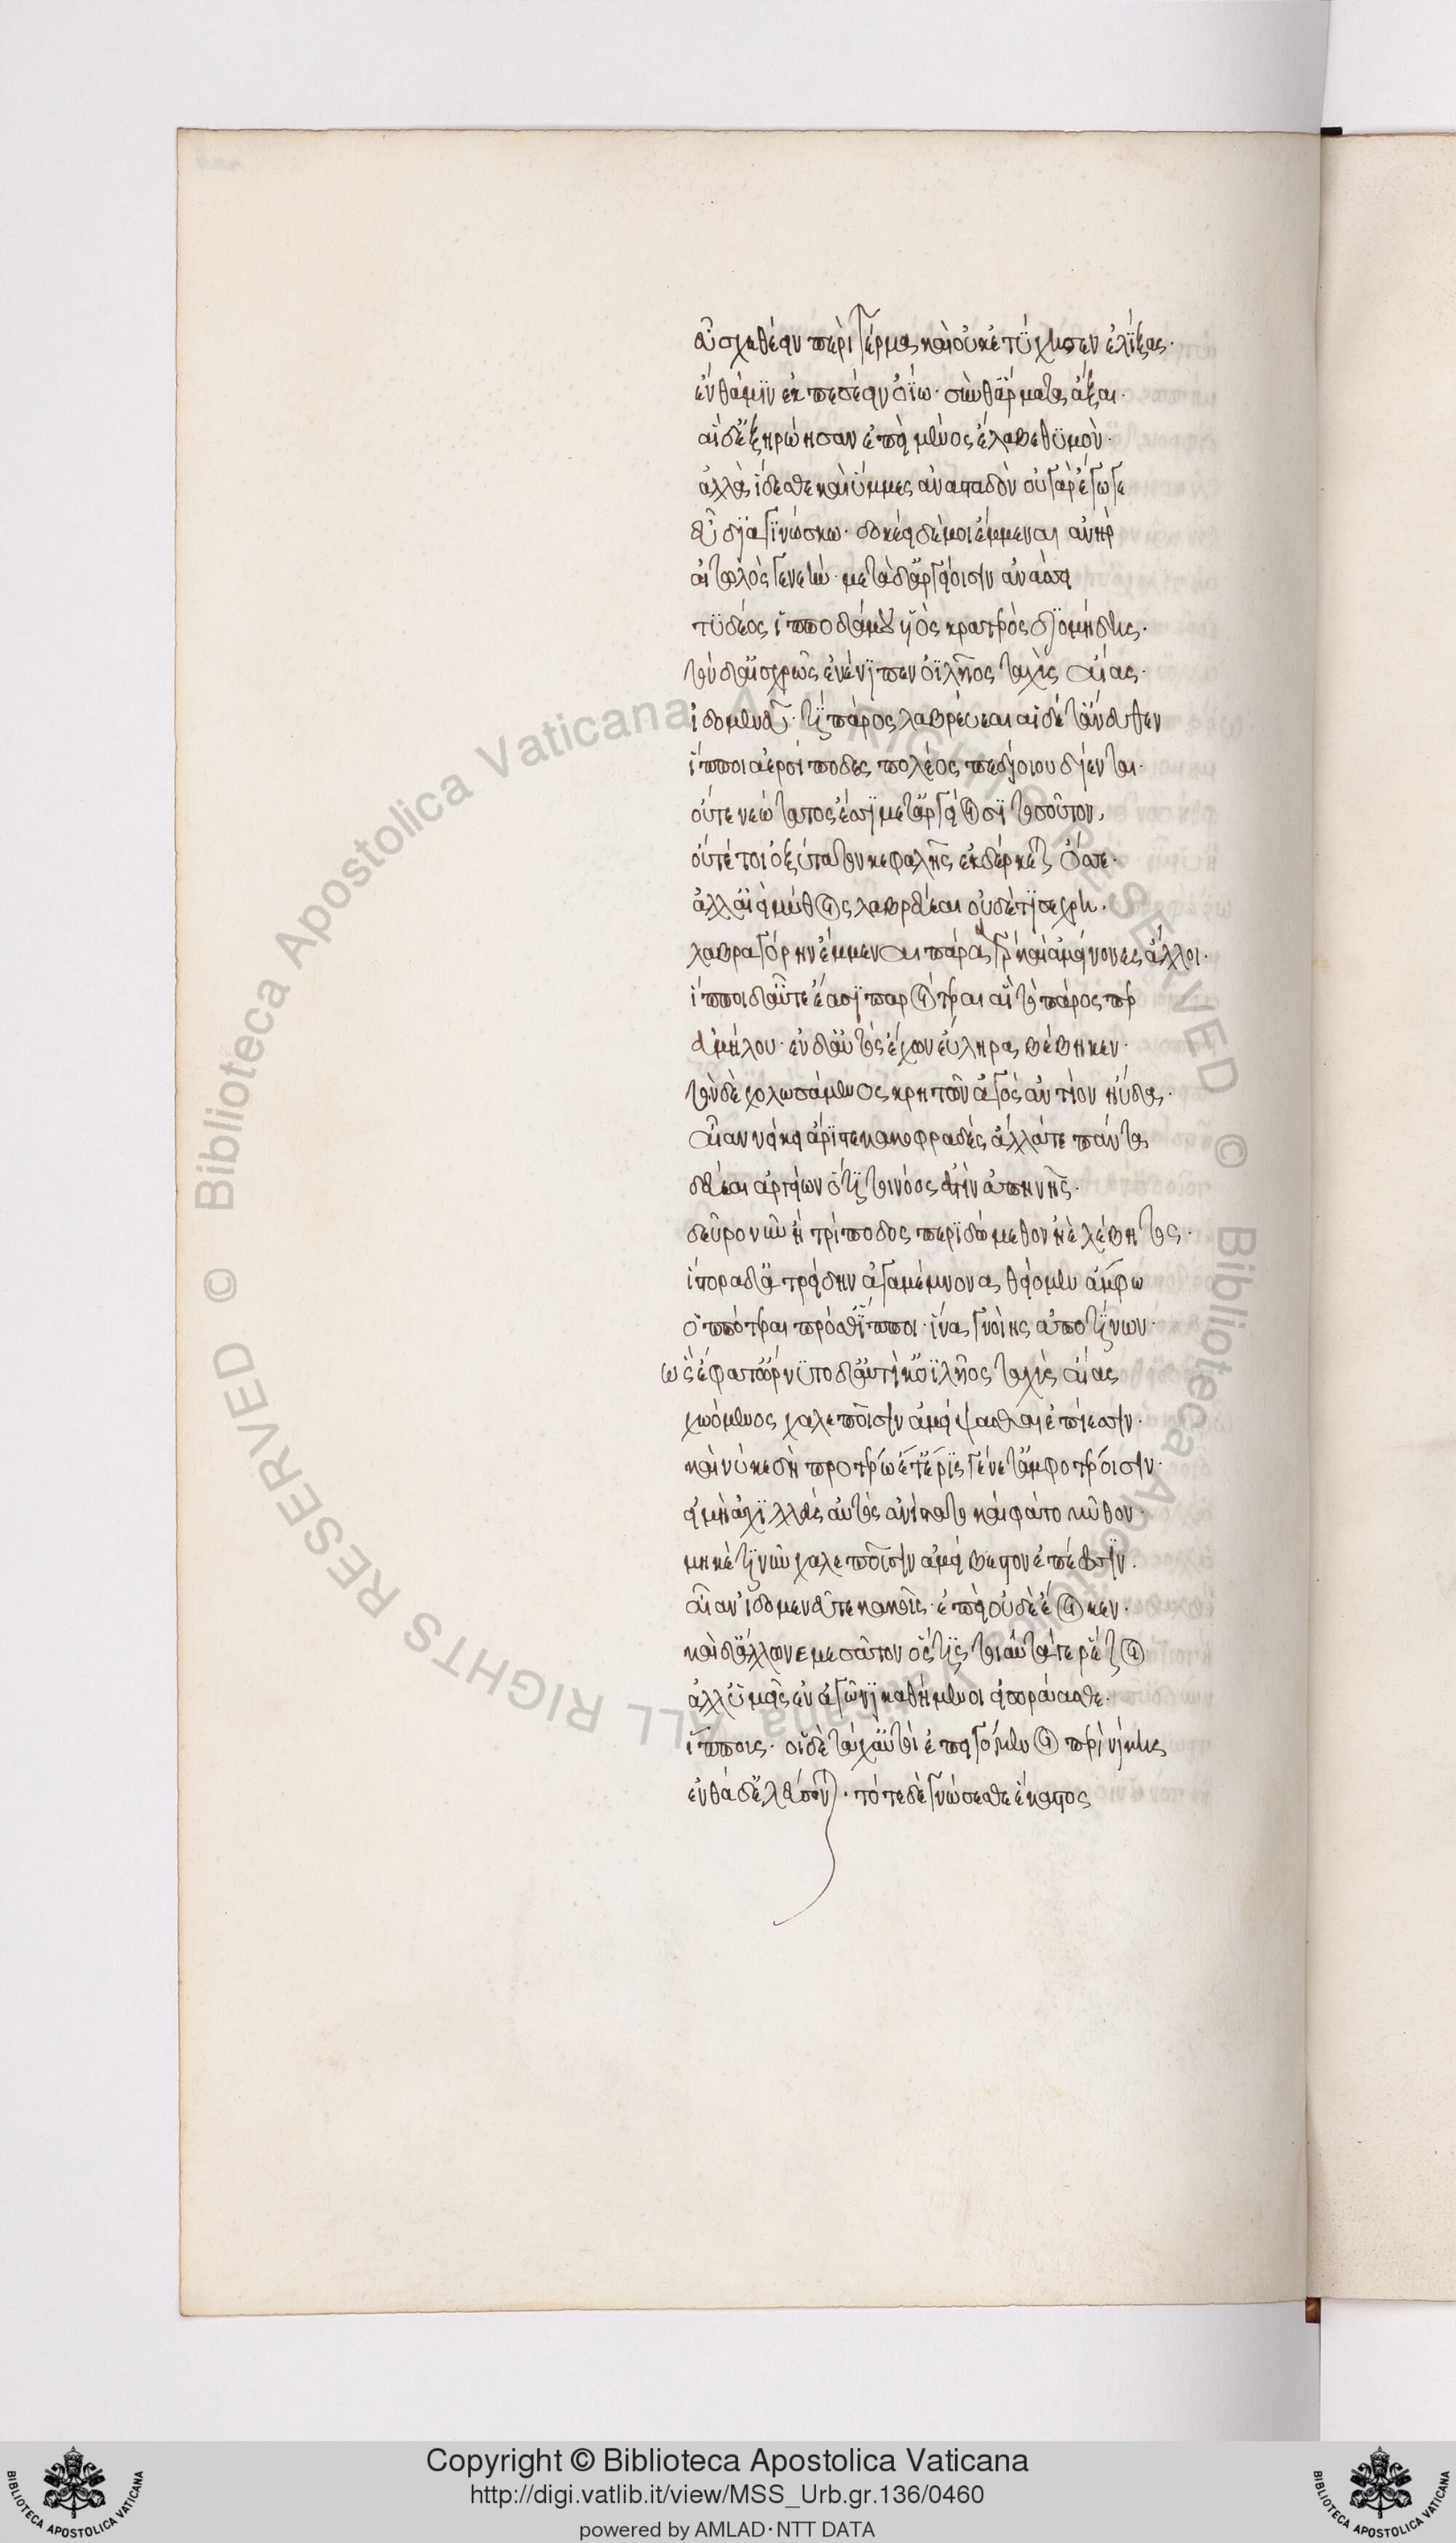 εὖ σχεθέειν περὶ τέρμα, καὶ οὐκ ἐτύχησεν ἑλίξας·
ἔνθά μϊν ἐκπεσέειν ὀΐω· σύν θ' ἅρματα ἄξαι·
αἱ δ' ἐξηρώησαν ἐπεὶ μένος ἔλλαβε θυμὸν·
ἀλλὰ ἴδεσθε καὶ ὔμμες ἀνασταδὸν οὐ γὰρ ἔγωγε
εὖ διαγινώσκω· δοκέει δέ μοι ἔμμεναι ἀνὴρ
αἰτωλὸς γενεὴν· μετὰ δ' ἀργείοισιν ἀνάσσει
τυδέος ἱπποδάμου υἱὸς κρατερὸς διομήδης·
τὸν δ' αἰσχρῶς ἐνένιπεν ὀϊλῆος ταχὺς αἴας·
ἰδομενεῦ· τί πάρος λαβρεύεαι αἱ δέ τ' ἄνευθεν
ἵπποι ἀερσίποδες πολέος πεδίοιο δίενται·
οὔτε νεώτατός ἐσσι μετ' ἀργείοισι τοσοῦτον,
οὔτέ τοι ὀξύτατον κεφαλῆς ἐκδέρκεται ὄσσε·
ἀλλ' αἰεὶ μύθοις λαβρεύεαι οὐδέ τί σε χρὴ.
λαβραγόρην ἔμμεναι πάρα γὰρ καὶ ἀμείνονες ἄλλοι·
ἵπποι δ' αὖτε ἔασι παροίτεραι αἳ τὸ πάρος περ
εὐμήλου· ἐν δ' αὐτὸς ἔχων εὔληρα βέβηκεν·
τὸν δὲ χολωσάμενος κρητῶν ἀγὸς ἀντίον ηὔδα·
αἶαν νείκει ἄριστε κακοφραδὲς ἄλλά τε πάντα
δεύεαι ἀργείων ὅτι τοι νόος ἐστὶν ἀπηνής·
δεῦρο νῦν ἢ τρίποδος περιδώμεθον ἠὲ λέβητος·
ἵστορα δ' ἀτρείδην ἀγαμέμνονα θείομεν ἄμφω
ὁππότεραι πρόσθ' ἵπποι· ἵνα γνοίης ἀποτίνων·
ὣς ἔφατ' ὤρνυτο δ' αὐτίκ' ὀϊλῆος ταχὺς αἴας
χωόμενος χαλεποῖσιν ἀμείψασθαι ἐπέεσσιν·
καί νύ κε δὴ προτέρω ἔτ' ἔρις γένετ' ἀμφοτέροισιν·
εἰ μὴ ἀχιλλεὺς αὐτὸς ἀνίστατο καὶ φάτο μῦθον·
μηκέτι νῦν χαλεποῖσιν ἀμείβεσθον ἐπέεσσιν.
αἶαν ἰδομενεῦ τε κακοῖς· ἐπεὶ οὐδὲ ἔοικεν·
καὶ δ' ἄλλῳ νεμεσᾶτον ὅς τις τοιαῦτά γε ῥέζοι
ἀλλ' ὑμεῖς ἐν ἀγῶνι καθήμενοι εἰσοράασθε·
ἵππους· οἱ δὲ τάχ' αὐτοὶ ἐπειγόμενοι περὶ νίκης
ἐνθάδ' ἐλεύσονται· τότε δὲ γνώσεσθε ἕκαστος
Copyright © Biblioteca Apostolica Vaticana
http://digi.vatlib.it/view/MSS_Urb.gr.136/0460
powered by AMLAD·NTT DATA